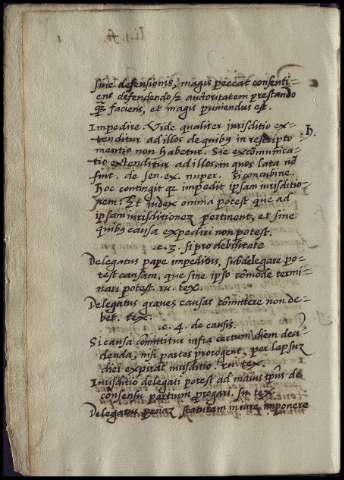 sine defensionis, magis peccat consenti-
ens defendendo, autoritatem prestando
q̃ faciens, et magis puniendus est.
Impedire. Vide qualiter iurisditio ex-
tenditur ad illos de quibꝰ in rescripto
mentio non habetur. Sic excommunica-
tio extenditur ad illos in quos lata nõ
h.
fuit. de sen. ex. nuper.
hoc contingit q̃ impedit ipsam iurisditio-
nem. Et iudex omnia potest que ad
ipsam iurisditionem pertinent, et sine
quibꝰ causa expediri non potest.
c. 3. si pro debilitate
Delegatus pape impeditus, subdelegare po-
test causam, que sine ipso cõmode termi-
nari potest. in. tex.
Delegatus graves causas cõmittere non de-
bet. tex.
c. 4. de causis.
Si causa cõmittitur infra certum diem deci-
denda, nisi partes prorogent, per lapsum
diei expirat iurisditio. in tex.
Iurisditio delegati potest ad maius tp̃us de
consensu partium prorogari. in tex.
Delegatus penam statutam in iure imponere